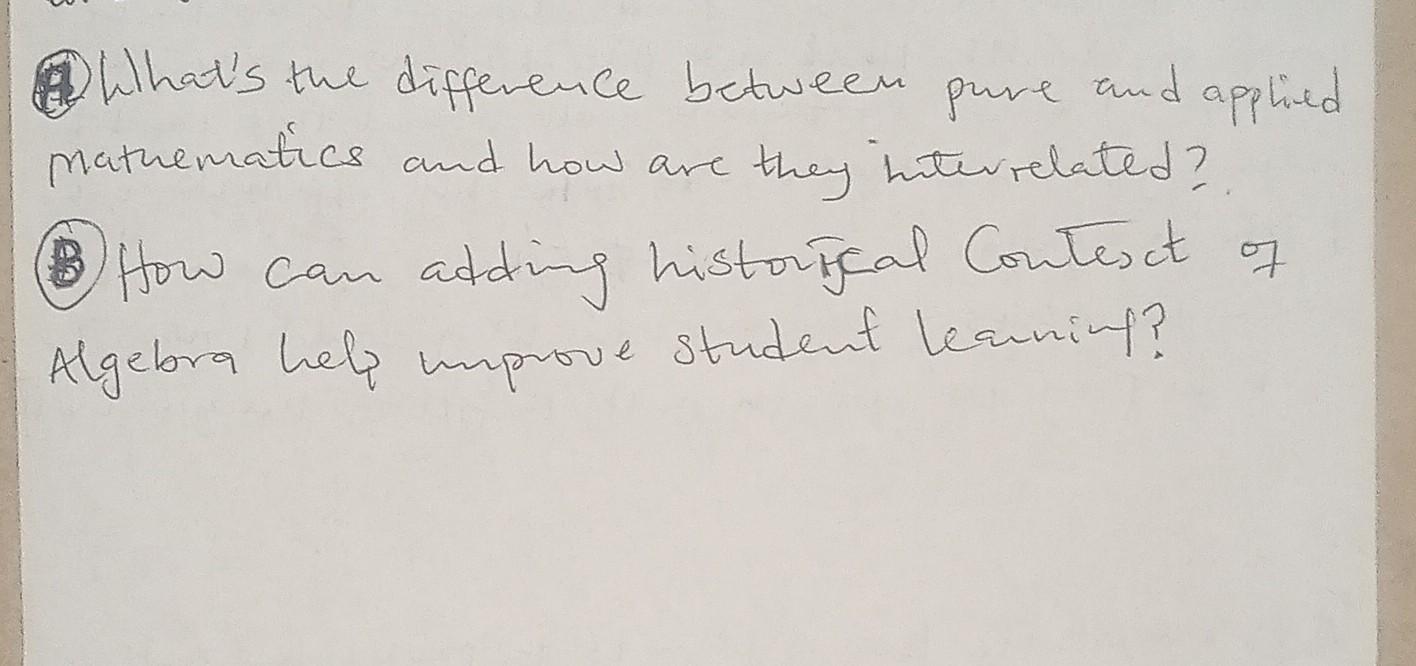 (A) What's the difference between pure and applied
mathematics and how are they interrelated?
(B) How can adding historical Context of
Algebra help improve student learning?